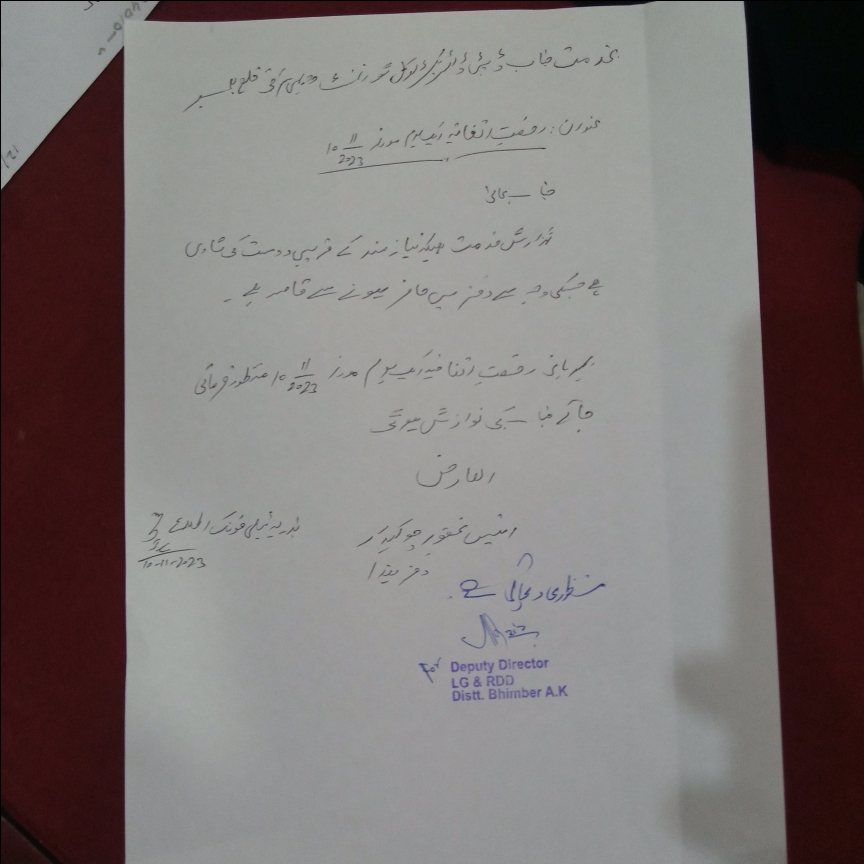 بخدمت جناب ڈپٹی ڈائریکٹر لوکل گورنمنٹ و دیہی ترقی ضلع بھمبر
عنوان: رخصت اتفاقیہ ایک یوم مورخہ 10-11-2023
جناب عالی!
گزارش خدمت ہیکہ نیازمند کے قریبی دوست کی شادی
ہے جسکی وجہ سے دفتر میں حاضر ہونے سے قاصر ہے۔
مہربانی رخصت اتفاقیہ ایک یوم مورخہ 10-11-2023 منظور فرمائی
جائے جناب کی نوازش ہوگی
العارض
انیس غفور چوکیدار
دفتر ہذا
بذریعہ ٹیلی فونک اطلاع
10-11-2023
منظوری دی جاتی ہے۔
For Deputy Director
LG & RDD
Distt. Bhimber A.K